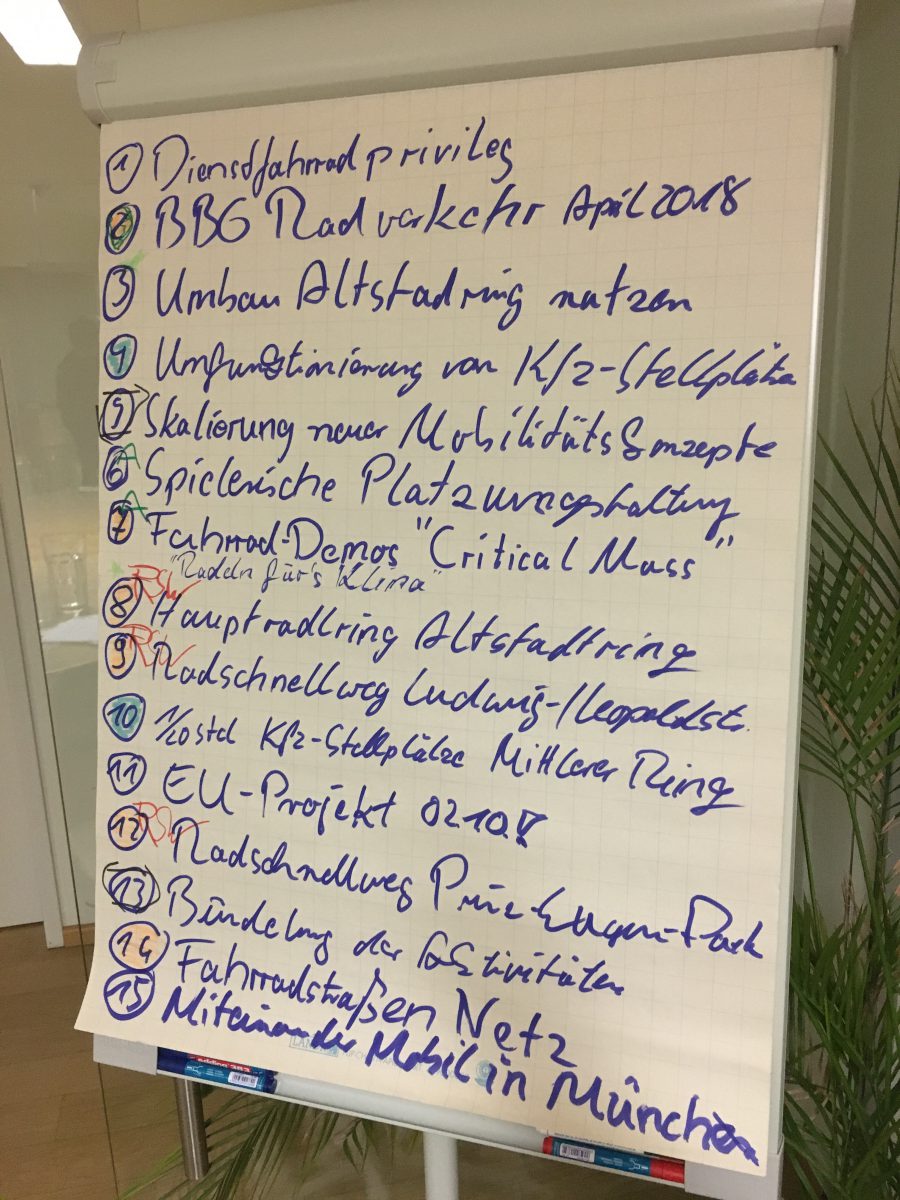 1 Dienstfahrradprivileg
2 BBG Radverkehr April 2018
3 Umbau Altstadring nutzen
4 Umfunktionierung von Kfz-Stellplätze
5 Skalierung neuer Mobilitätskonzepte
6 Spielerische Platzumgestaltung
7 Fahrrad-Demos "Critical Mass"
"Radeln für's Klima"
8 RSW Hauptradlring Altstadtring
9 RSW Radschnellweg Ludwig-/Leopoldstr.
10 Kfz-Stellplätze Mittlerer Ring
11 EU-Projekt
12 RSW Radschnellweg Prinz-Eugen-Park
13 Bündelung der Aktivitäten
14 Fahrradstraßen Netz
15 Miteinander Mobil in München